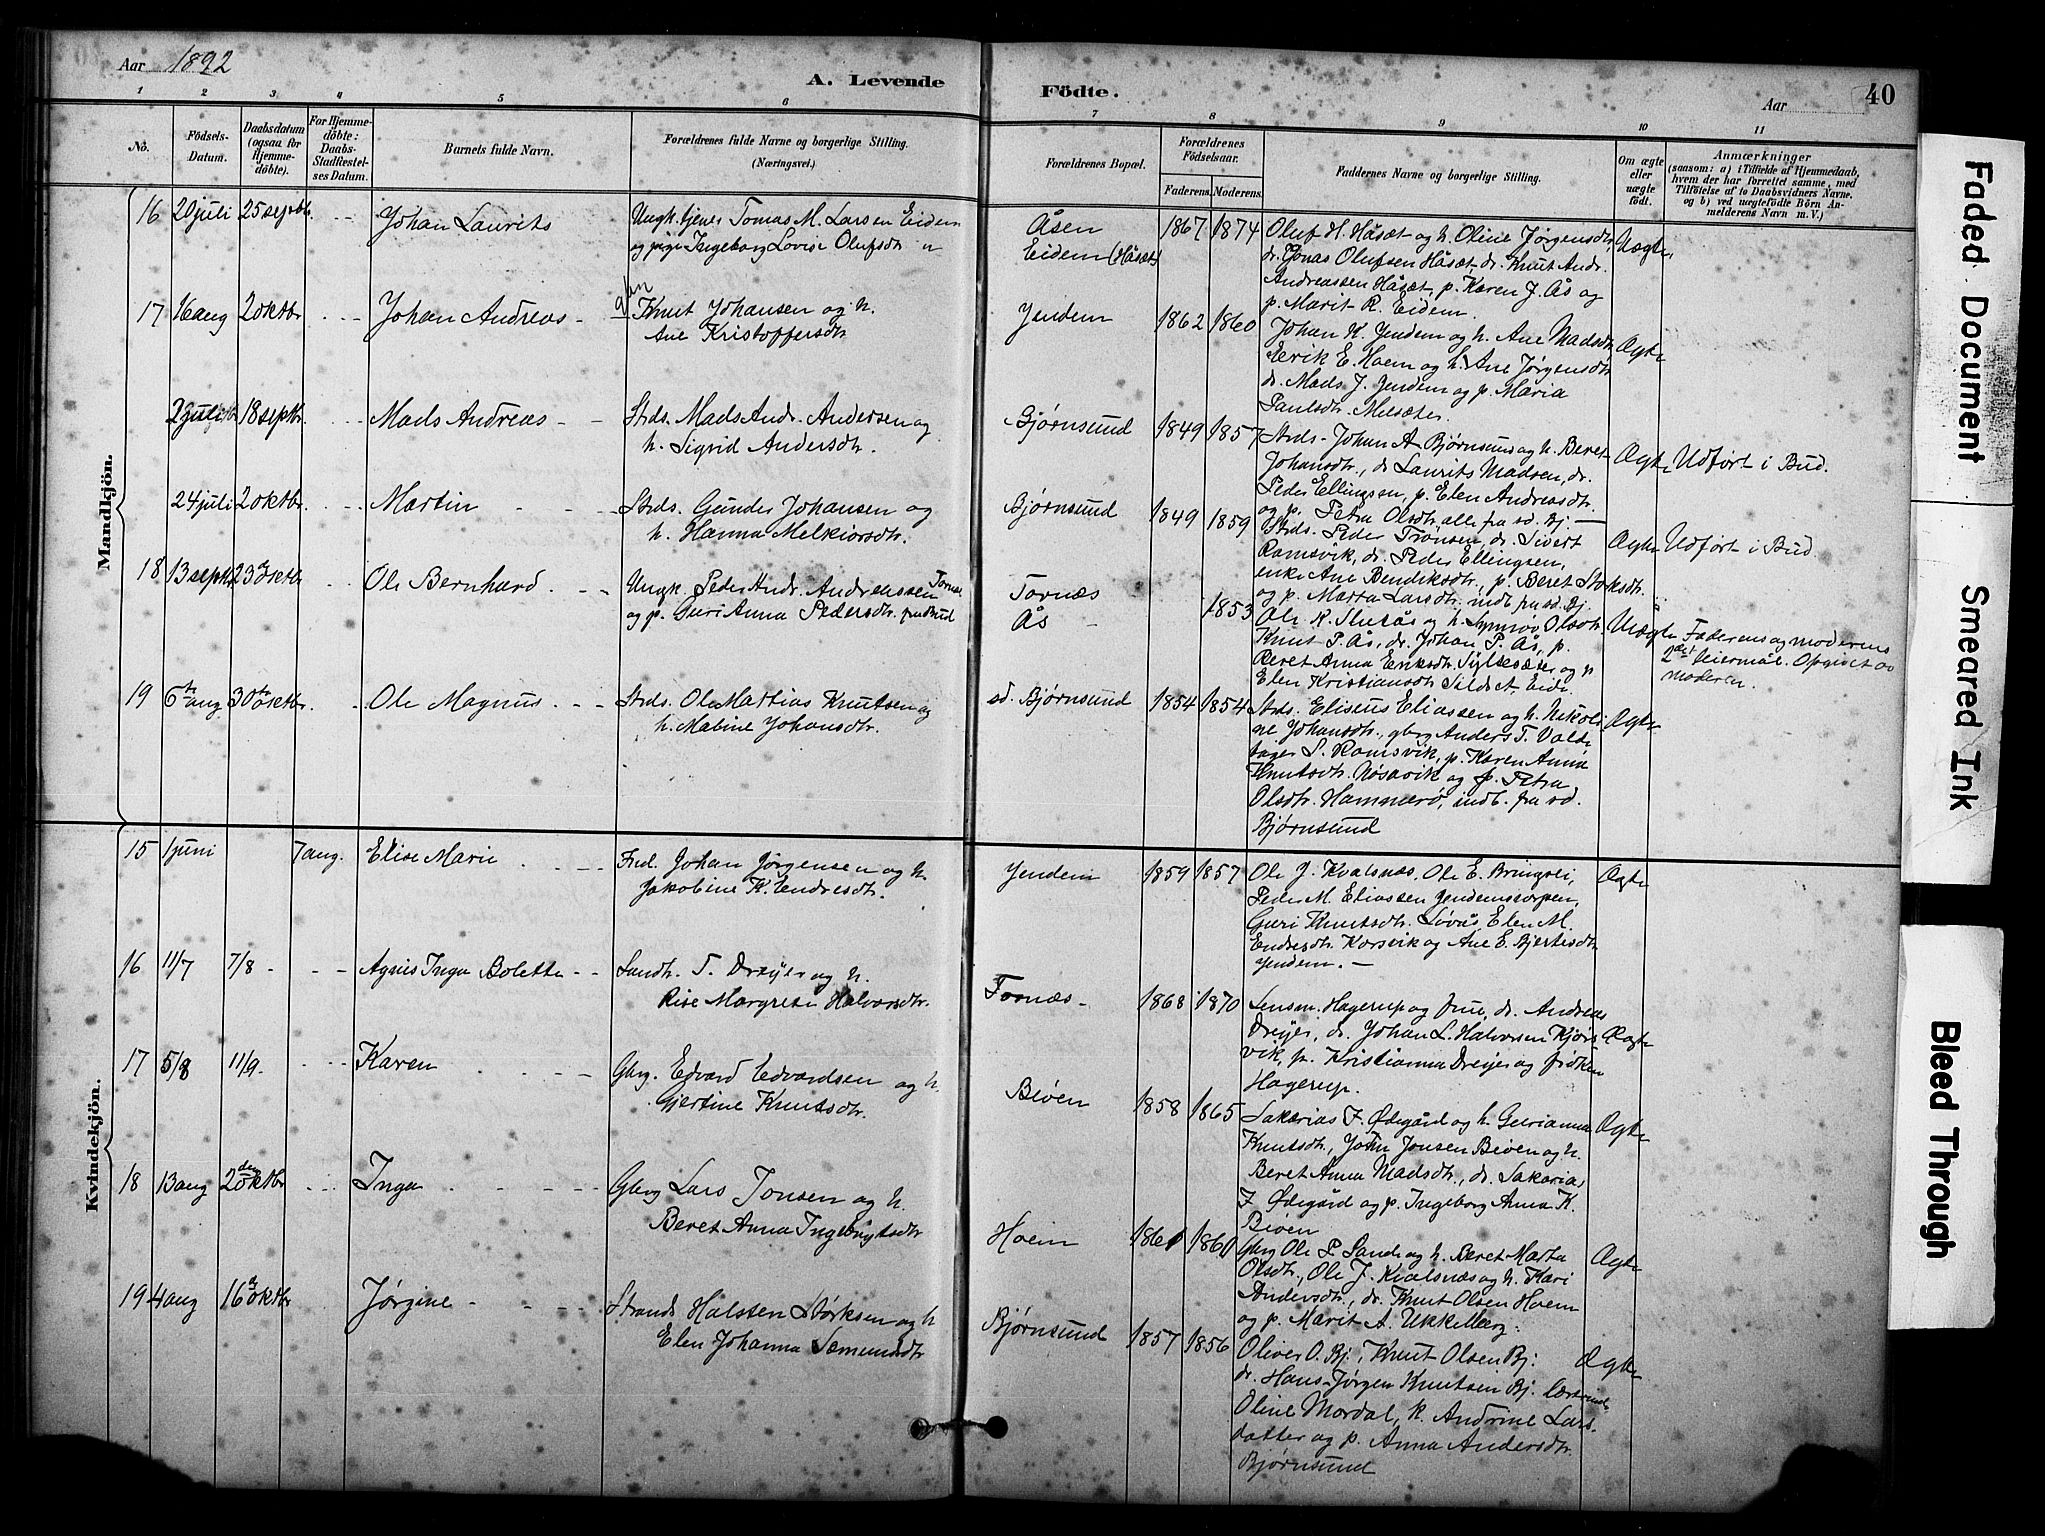 Aar 1892
A. Levende
1 2 3 4 5 6
No.
Födsels-
Datum.
Daabsdatum
(ogsaa for
Hjemme-
døbte).
For Hjemme-
døbte:
Daabs-
Stadfæstel-
ses Datum.
Barnets fulde Navn.
Forældrenes fulde Navne og borgerlige Stilling.
(Næringsvei.)
Mandkjön.
16 20 juli 25 septbr. Johan Laurits
Ungk. tjener Tomas M. Larsen Eidem
og pige Ingeborg Lovise Olufsdtr "
17 16 aug 2 oktbr Johan Andreas
Knut Johansen og h.
Ane Kristoffersdtr
18 septbr. Mads Andreas
Strds. Mads Andr. Andersen og
h. Sigrid Andersdtr.
24 juli 2 oktbr. Martin
Strds. Gunder Johansen og
h. Hanna Melkiorsdtr.
18 13 septbr 23 oktbr Ole Bernhard
Ungk. Peder Andr. Andreassen Tornæs
og p. Guri Anna Pedersdtr.
19 6te aug 30te oktbr. Ole Magnus
Strds. Ole Mattias Knutsen og
h. Maline Johansdtr.
Kvindekjön.
15 1 juni 7 aug. Elise Marie
Johan Jørgensen og h.
Jakobine K. Endresdtr.
16 11/7 7/8 Agnes Inga Bolette
Landh. T. Dreyer og h.
Margrete Halvorsdtr.
17 5/8 11/9 Karen
Gbrg. Edvard Edvardsen og h.
Gjertine Knutsdtr.
18 13 aug 2den oktbr Inga
Gbrg Lars Jonsen og h.
Beret Anna Ingebrigtsdtr
19 4 aug 16 oktbr Jørgine
Strands. Halsten Størksen og h
Elen Johanna Semundsdtr
Födte.
Aar
40
7 8 9 10 11
Forældrenes Bopæl.
Forældrenes
Födselsaar.
Faderens. Moderens.
Faddernes Navne og borgerlige Stilling.
Om ægte
eller
uægte
födt.
Anmærkninger
(saasom: a) i Tilfælde af Hjemmedaab,
hvem der har forrettet samme, med
Tilføielse af to Daabsvidners Navne.
og b) ved uægtefödte Börn An-
melderens Navn m. V.)
Åsen 1867 1874 Oluf H. Håsæt og h. Oline Jørgensdtr Uægte
Eidem (Håsæt) dr. Jonas Olufsen Håsæt, dr. Knut Andr.
Andreassen Håsæt, p. Karen J. Ås og
p. Marit R. Eidem.
Jendem 1862 1860 Johan K. Jendem og h. Ane Madsdtr Ægte
Eerik E. Hoem og h. Ane Jørgensdtr
dr. Mads J. Jendem og p. Maria
Paulsdtr. Melsæter.
Bjørnsund 1849 1857 Strds. Johan A. Bjørnsund og h. Beret Ægte Udført i Bud.
Johansdtr., dr. Laurits Madsen, dr.
Peder Ellingsen, p. Elen Andreasdtr
og p. Petra Olsdtr, alle fra sd. Bj.
Bjørnsund 1849 1859 Strds. Peder Tronsen, dr. Sivert Ægte Udført i Bud
Ramsvik, dr. Peder Ellingsen,
enke Ane Bendiksdtr., p. Beret
og p. Marta Larsdtr. indb. fra sd. Bj.
Tornæs
Ås 1853 Ole K. og h. Synnøv Olsdtr. Uægte Faderens og moderens
Knut P. Ås, dr. Johan P. Ås, p. 2det leiermål. Opgivet av
Beret Anna Eriksdtr. Sylsesæter og p. moderen.
Elen Kristiansdtr Eide.
sd. Bjørnsund 1854 1854 Strds. Eliseus Eliassen og h. Nikoli- Ægte
ne Johansdtr., gbrg Anders T.
L. Ramsvik, p. Karen Anna
Knutsdtr. Nøsavik og p. Petra
Olsdtr. Hammerø, indb. fra sd.
Bjørnsund
Jendem 1859 1857 Ole J. Kvalsnæs, Ole E. Bringsli, Ægte
Peder M. Eliassen
Guri Knutsdtr. Løvås, Elen M.
Endresdtr. Korsvik og Ane E. Bjertesdtr
Jendem.
Tornæs 1868 1870 Lensm. Hagerup og frue, dr. Andreas Ægte
Dreyer, dr. Johan L. Halvorsen Kjørs-
vik, p. Kristianna Dreyer og frøken
Hagerup.
Bioen 1858 1865 Sakarias J. Ødegård og h. Gurianna Ægte
Knutsdtr., John Jonsen Bioen og h.
Beret Anna Madsdtr., dr. Sakarias
J. Ødegård og p. Ingeborg Anna K.
Bioen
Hoem 1861 1860 Gbrg Ole P. Sande og h. Beret Marta Ægte
Olsdtr., Ole J. Kvalsnæs og h. Kari
Andersdtr., dr. Knut Olsen Hoem
og p. Marit A. Ukkelberg.
Bjørnsund 1857 1856 Oliver O. Bj., Knut Olsen Bj. Ægte
dr. Hans Jørgen Knutsen Bj.
Oline Mordal, k. Andrine Lars-
datter og p. Anna Andersdtr.
Bjørnsund
Faded Document
Smeared Ink
Bleed Through